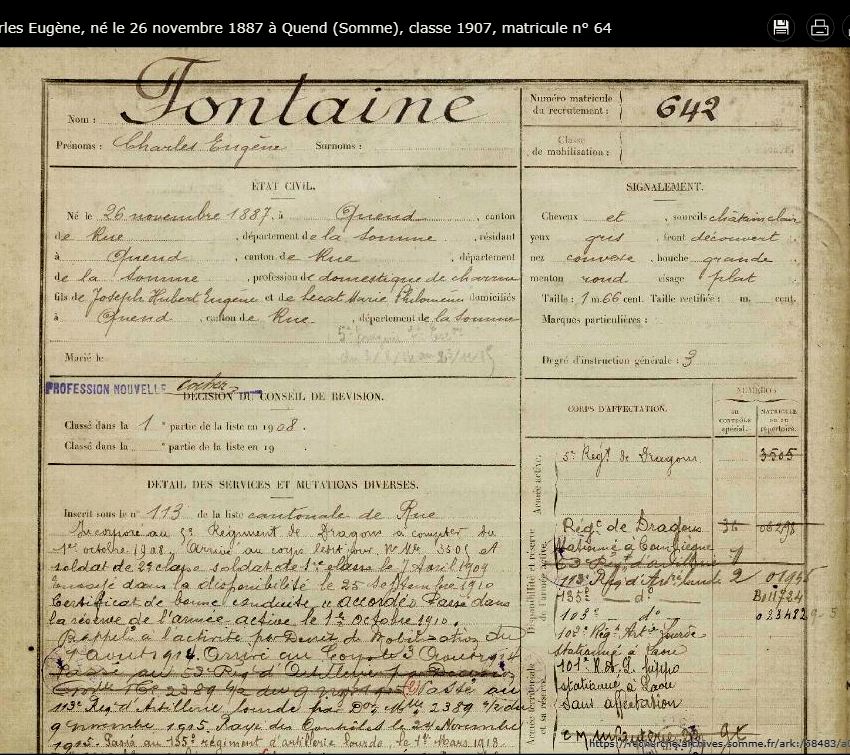 rles Eugène, né le 26 novembre 1887 à Quend (Somme), classe 1907, matricule n° 64
Nom : Fontaine
Prénoms : Charles Eugène Surnoms :
Numéro matricule du recrutement : 642
Classe de mobilisation :
ÉTAT CIVIL.
Né le 26 novembre 1887, à Quend, canton
de Rue, département de la Somme, résidant
à Quend, canton de Rue, département
de la Somme, profession de domestique de charrue
fils de Joseph Hubert Eugène et de Marie Philomène domiciliés
à Quend, canton de Rue, département de la Somme
Marié le
SIGNALEMENT.
Cheveux et, sourcils châtain clair
yeux gris, front découvert
nez convexe, bouche grande
menton rond visage plat
Taille : 1 m. 66 cent. Taille rectifiée : m. cent.
Marques particulières :
Degré d'instruction générale : 3
PROFESSION NOUVELLE cocher
DÉCISION DU CONSEIL DE REVISION.
Classé dans la 1e partie de la liste en 1908.
Classé dans la e partie de la liste en 19
DÉTAIL DES SERVICES ET MUTATIONS DIVERSES.
Inscrit sous le n° 113 de la liste cantonale de Rue
Incorporé au 5e Régiment de Dragons à compter du
1er octobre 1908. Arrivé au corps ledit jour, et
soldat de 2e classe soldat de 1re classe le 7 Avril 1909
Envoyé dans la disponibilité le 25 Septembre 1910
Certificat de bonne conduite "accordé" Passé dans
la réserve de l'armée active le 1er Octobre 1910.
Rappelé à l'activité par Décret de Mobilisation du
1 août 1914. Arrivé au Corps le 3 Août 1914
Passé au
113e Reg d'Artillerie lourde par 2389 du
9 novembre 1915. Raye des Contrôles le 24 Novembre
1915. Passé au 135e régiment d'artillerie lourde, le 1er Mars 1918.
CORPS D'AFFECTATION.
NUMÉROS
AU CONTRÔLE spécial.
MATRICULE OU AU répertoire.
Armée active.
5e Régt de Dragons 3505
Disponibilité et réserve de l'armée active.
Régt de Dragons 36
stationné à Compiègne
113e Rég d'Artie lourde 2
135e do
103e do
103e Régt Artie Lourde
stationné à Laon
101e R.A.L. hippo
stationné à Laon
Sans affectation
et sa réserve.
https://recherche.archives.somme.fr/ark:/58483/a